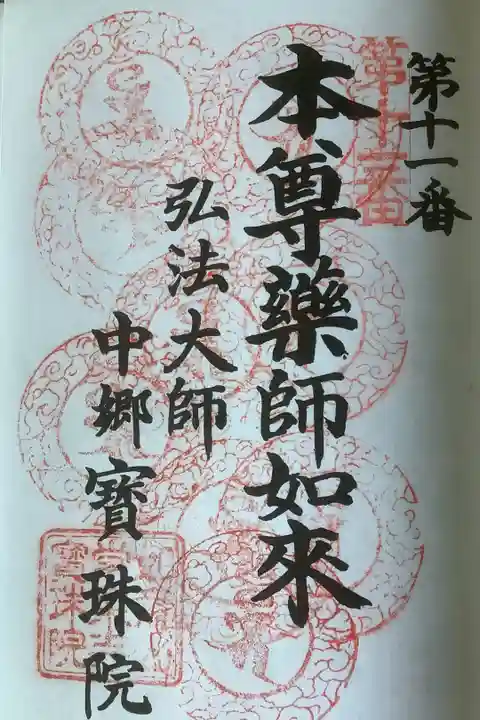 第十一番
第十一番
本尊藥師如來
弘法大師
中郷寶珠院